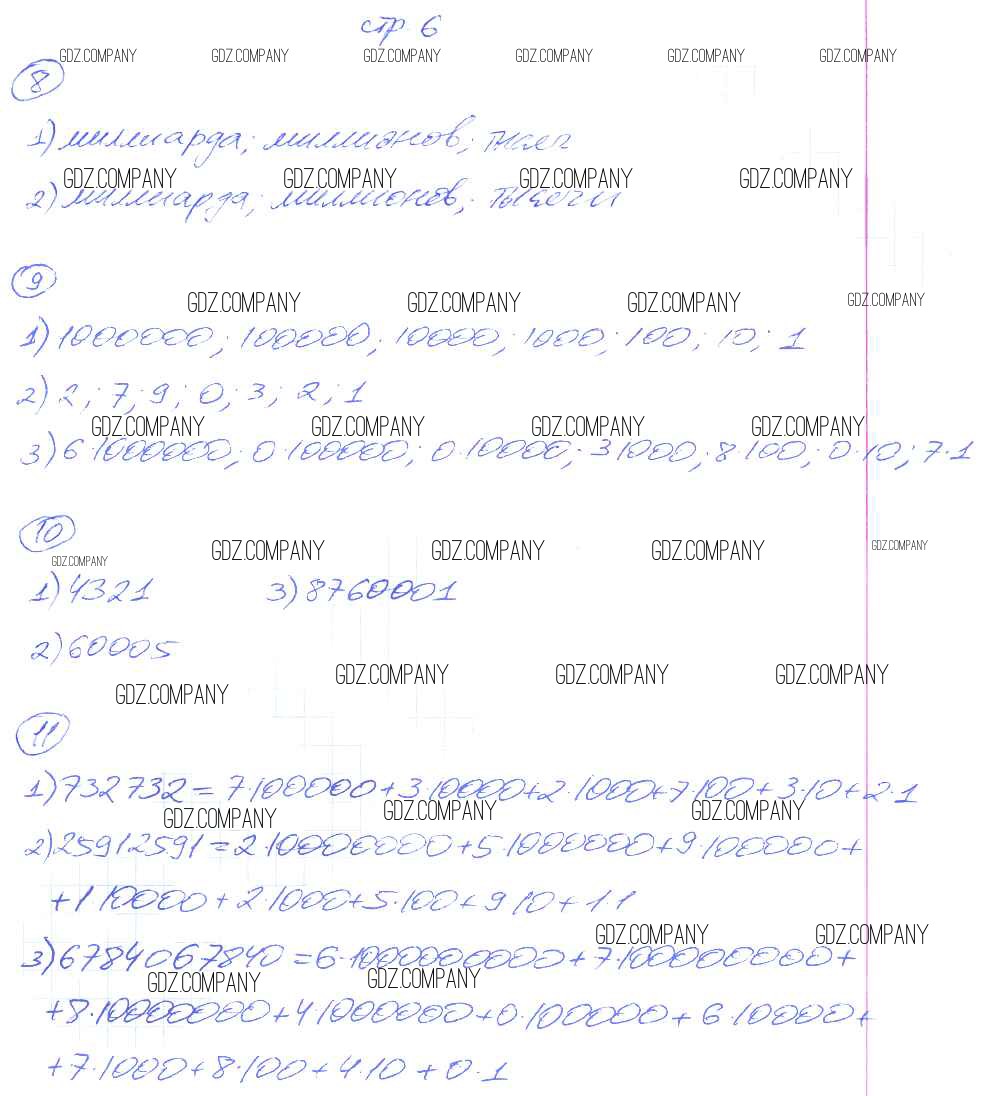 стр. 6
GDZ.COMPANY GDZ.COMPANY GDZ.COMPANY GDZ.COMPANY GDZ.COMPANY GDZ.COMPANY
8
1) миллиарда; миллионов; тысяч
GDZ.COMPANY GDZ.COMPANY GDZ.COMPANY GDZ.COMPANY
2) миллиарда; миллионов; тысячи
9
GDZ.COMPANY GDZ.COMPANY GDZ.COMPANY GDZ.COMPANY
1) 1000000; 100000; 10000; 1000; 100; 10; 1
2) 2; 7; 9; 0; 3; 2; 1
GDZ.COMPANY GDZ.COMPANY GDZ.COMPANY GDZ.COMPANY
3) 6·1000000; 0·100000; 0·10000; 3·1000; 8·100; 0·10; 7·1
10
GDZ.COMPANY GDZ.COMPANY GDZ.COMPANY GDZ.COMPANY GDZ.COMPANY
1) 4321 3) 8760001
2) 60005
GDZ.COMPANY GDZ.COMPANY GDZ.COMPANY GDZ.COMPANY
11
1) 732732 = 7·100000+3·10000+2·1000+7·100+3·10+2·1
GDZ.COMPANY GDZ.COMPANY GDZ.COMPANY
2) 25912591 = 2·10000000+5·1000000+9·100000+
+1·10000+2·1000+5·100+9·10+1·1
GDZ.COMPANY GDZ.COMPANY
3) 6784067840 = 6·1000000000+7·100000000+
GDZ.COMPANY GDZ.COMPANY
+8·10000000+4·1000000+0·100000+6·10000+
+7·1000+8·100+4·10+0·1